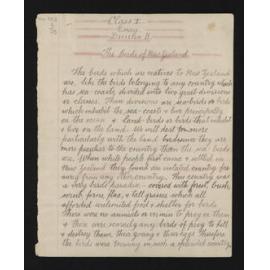 Class I.
Essay
Division II.
The Birds of New Zealand
The birds which are natives to New Zealand
are, like the birds belonging to any country which
has sea-coasts, divided into two great divisions
or classes. These divisions are sea-birds or birds
which inhabit the sea-coast & live principally
on the ocean & land-birds or birds that inhabit
& live on the land. We will deal far more
particularly with the land birds since they are
more peculiar to the country than the sea birds
are. When white people first came & settled in
New Zealand they found an isolated country far
away from any other country. This country was
a very birds paradise - covered with forest, bush,
scrub fern, flax, & tall grasses which all
afforded unlimited food & shelter for birds
There were no animals or vermin to prey on them
& there were scarcely any birds of prey to kill
& destroy them, their young & their eggs. Therefore
the birds were thriving in such a splendid country